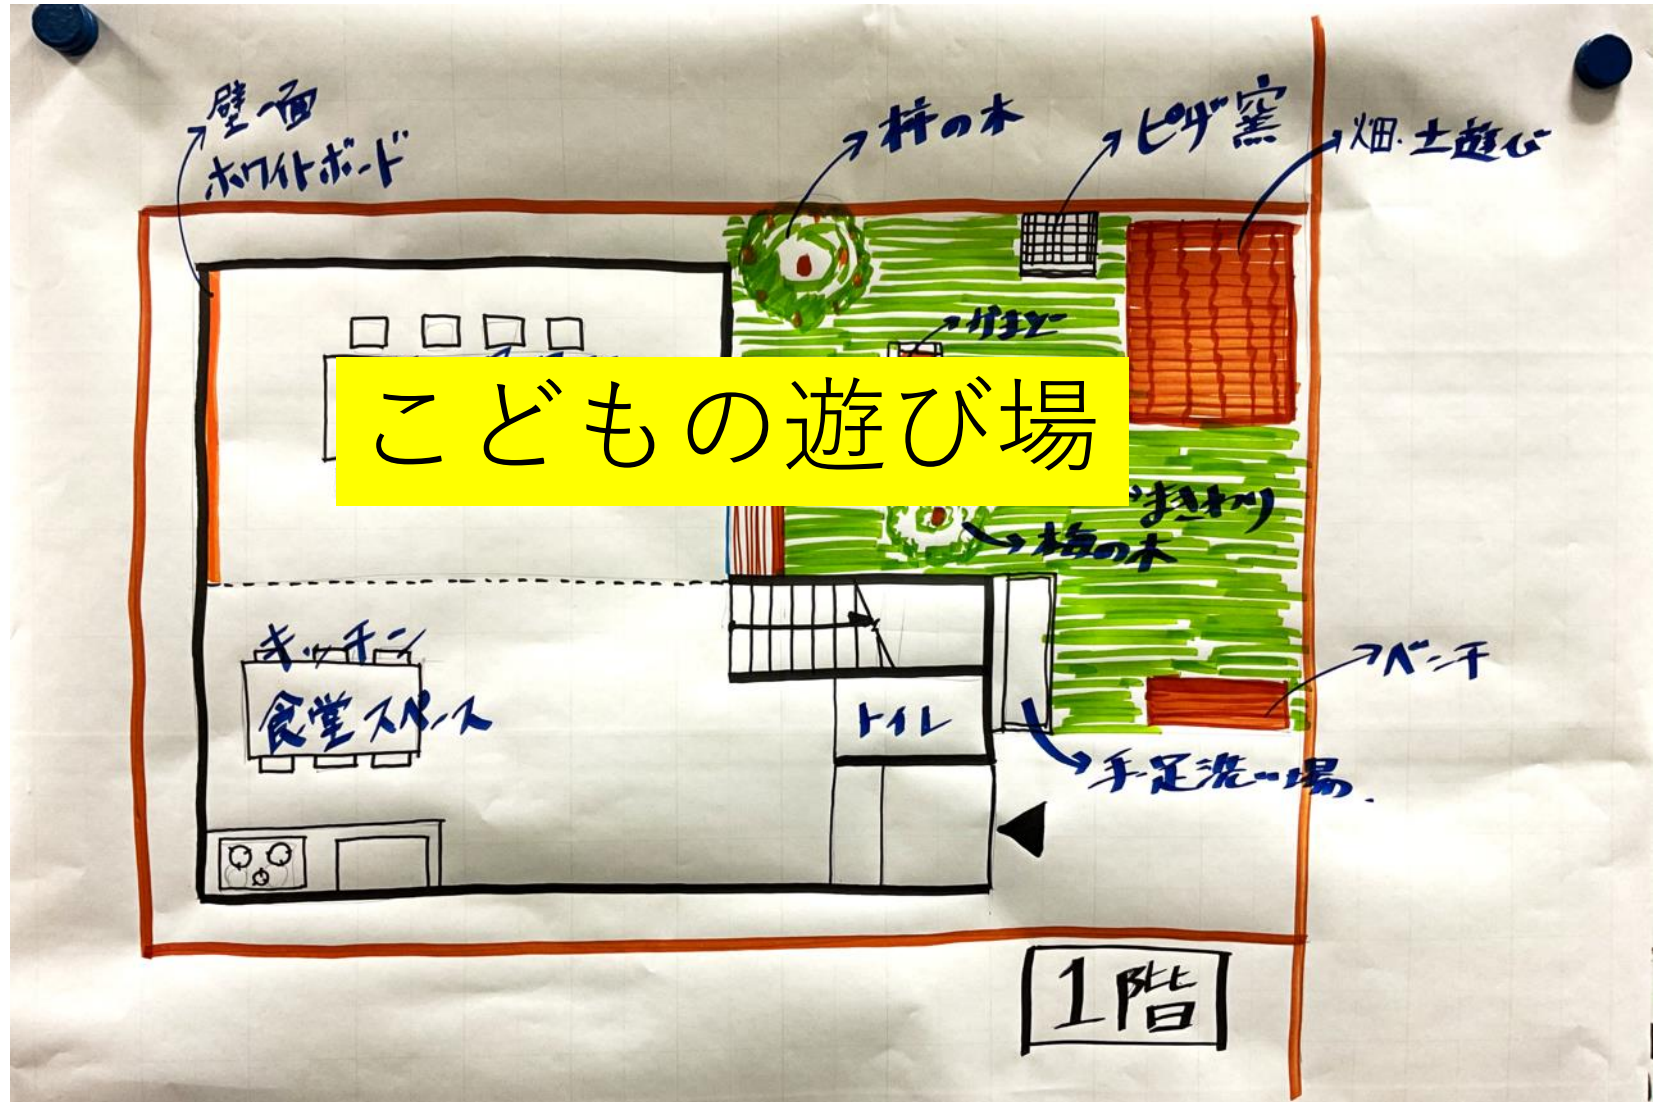 壁一面
ホワイトボード
柿の木
ピザ窯
畑・土遊び
かまど
こどもの遊び場
まきわり
梅の木
キッチン
食堂スペース
トイレ
ベンチ
手・足洗い場
1階